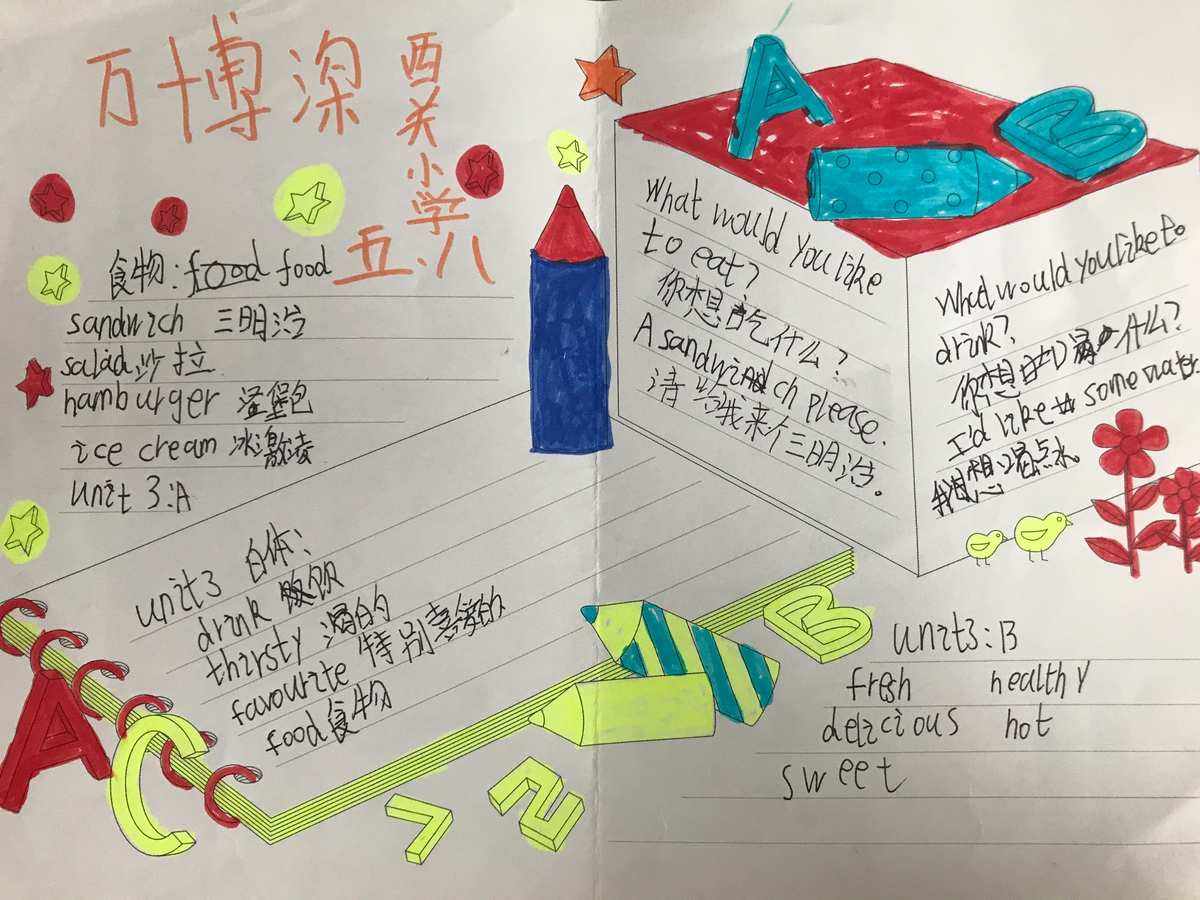 万博深
西关小学
五.八
食物: food food
sandwich 三明治
salad 沙拉
hamburger 汉堡包
ice cream 冰激凌
unit 3:A
unit3
drink 饮
thirsty 渴的
favourite 特别喜爱的
food 食物
A
B
What would you like
to eat?
你想吃什么?
A sandwich please.
请给我来个三明治。
What would you like to
drink?
你想喝什么?
I'd like some water.
我想喝点水。
B
unit3:B
fresh healthy
delicious hot
sweet
A C
1 2